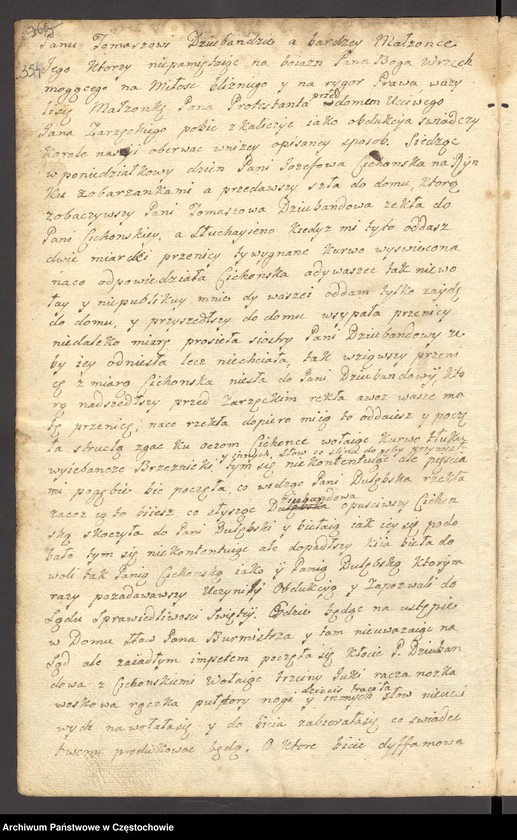 365
Panu Tomaszowi Dziubandzie a bardzey Małzonce
354 Jego Ktorzy niepamiętaiąc na boiazn Pana Boga Wszech
mogącego na Miłosc bliznego y na rygor Prawa wazy
lisię Małzonkę Pana Protestanta przed domem Uczciwego
Jana Zaręckiego pobic zkaliczyc iako obdukcya swiadczy
Korale naszyi oberwac wnizey opisany sposob. Siedząc
w poniedziałkowy dzien Pani Jozefowa Cichonska na Ryn
ku zobarzankami a przedawszy szła do domu, ktorą
zobaczywszy Pani Tomaszowa Dziubandowa rzekła do
Pani Cichonskiey, a słuchayseno kiedyz mi ty to oddasz
dwie miarcki przenicy ty wygnane kurwo wyswiecona
naco odpowiedziała Cichonska adywaszec tak niewo
łay y niepublikuy mnie dy waszei oddam tylko zaydę
do domu, y przyszedłszy do domu wsypała przenicy
niedaleko miarę prosieła siostry Pani Dziubandowy ze
by iey odniesła lecz niechciała, tak wziąwszy przeni
cę z miarą Cichonska niesła do Pani Dziubandowy, kto
rą nadszedłszy przed Zaręckim rekła awoz wasze ma
tę przenicę, naco rzekła dopiero mi ią to oddaisz y poczę
ła strucią zgac ku oczom Cichonce wołaiąc kurwo tłuku
y innych słow co slina do gęby przyniesie
wyiebancze Brzeznicki, tym się niekontentuiąc ale pięscia
mi pozębie bic poczęła, co widząc Pani Dulębska rzekła
zacoz ią to biiesz, co słysząc Dziubandowa opusciwszy Cichon
ską skoczyła do Pani Dulębski y biełaią iak iey się podo
bało tym się niekontentuiąc ale dopadłszy kiia bieła do
woli tak Panią Cichonską iako y Panią Dulębską ktorym
razy pozadawawszy Uczynieły Obdukcyą y Zapozwali do
Sądu Sprawiedliwosci Swiętey, Gdzie będąc na ustępie
w Domu Sław Pana Burmistrza y tam nieuwazaiąc na
Sąd ale zaiadłym impetem poczęła się kłocic P. Dziuban
dowa z Cichonskiemi Wołaiąc trzcuny Juki racza nozka
woskowa rączka pułtory nogi y dziecis traceła innych słow nieucci
wych nawołałasię y do bicia zabierałasię co swiadec
twem produkowac będą. O ktore bicie dyffamowa
Archiwum Państwowe w Częstochowie